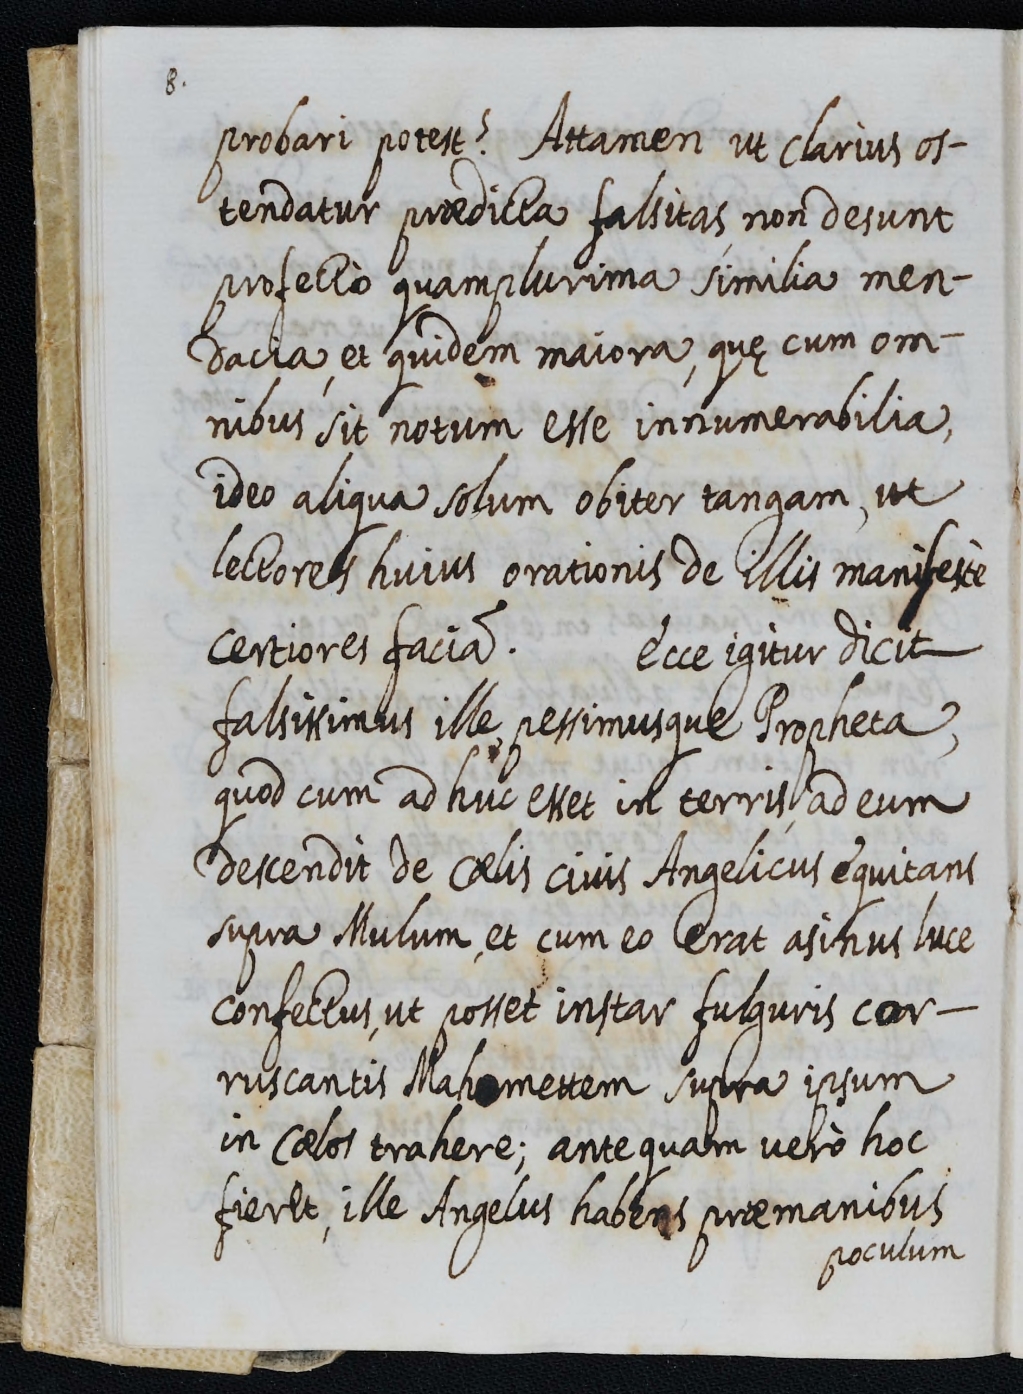 8.
probari potest? Attamen ut clarius os-
tendatur prædicta falsitas, non desunt
profectò quamplurima similia men-
dacia, et quidem maiora, quę cum om-
nibus sit notum esse innumerabilia,
ideo aliqua solum obiter tangam, ut
lectores huius orationis de illis manifestè
certiores faciā. Ecce igitur dicit
falsissimus ille, pessimusque Propheta,
quod cum adhuc esset in terris, ad eum
descendit de Cælis civis Angelicus equitans
supra Mulum, et cum eo erat asinus luce
confectus, ut posset instar fulguris cor-
ruscantis Mahomettem supra ipsum
in Cælos trahere; antequam verò hoc
fieret, ille Angelus habens præmanibus
poculum